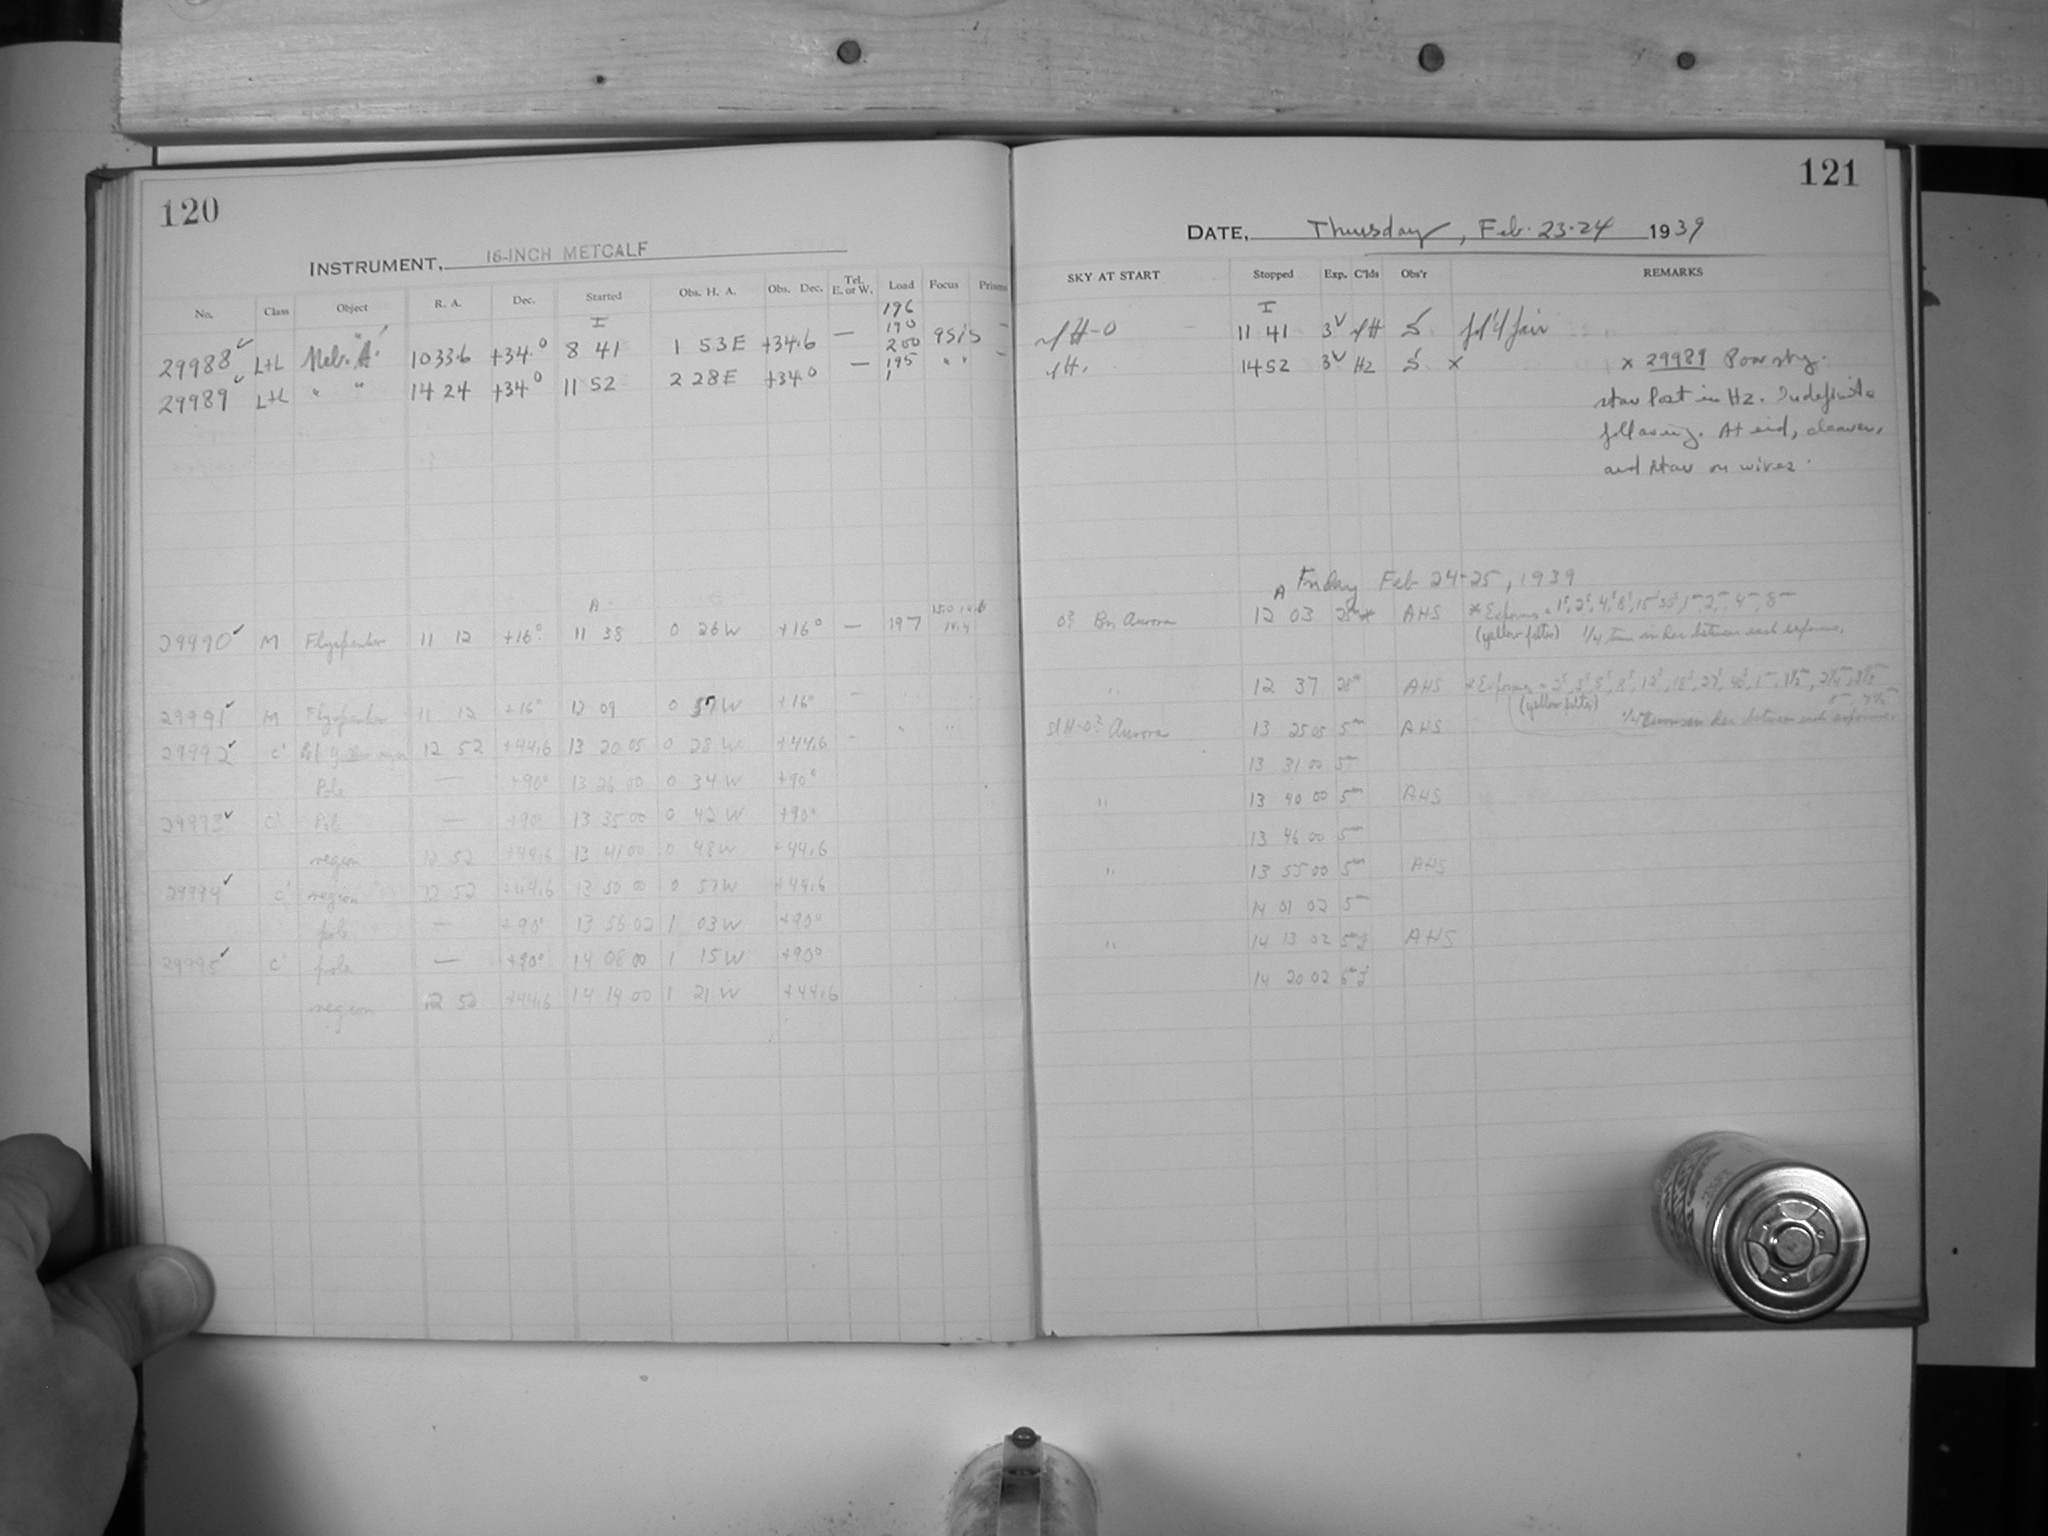 120
INSTRUMENT, 16-INCH METCALF
No. Class Object R. A. Dec. Started Obs. H. A. Obs. Dec. Tel. E. or W. Load Focus Prisms
I 196
190
29988 ✓ L+L Neb. "A" 10 33.6 +34.0 8 41 1 53 E +34.6 — 200 95
29989 ✓ L+L " " 14 24 +34.0 11 52 2 28 E +34.0 — 195 " " –
A
29990 ✓ M 11 12 +16° 11 38 0 26 W +16° — 197
29991 ✓ M 11 12 +16° 12 09 0 57 W +16° –
29992 ✓ C' 12 52 +44.6 13 20 05 0 28 W +44.6 – " "
Pole — +90° 13 26 00 0 34 W +90°
29993 ✓ C' Pole — +90° 13 35 00 0 42 W +90°
region 12 52 +44.6 13 41 00 0 48 W +44.6
29994 ✓ C' region 12 52 +44.6 13 50 00 0 57 W +44.6
pole — +90° 13 56 02 1 03 W +90°
29995 ✓ C' pole — +90° 14 08 00 1 15 W +90°
region 12 52 +44.6 14 14 00 1 21 W +44.6
121
DATE, Thursday, Feb. 23-24 1939
SKY AT START Stopped Exp. C'lds Obs'r REMARKS
I
sl H-0 11 41 3 sl H S fol'd fair
sl H. 14 52 3 Hz S x x 29989 Poor sky.
star lost in Hz. Indefinite
following. At end, clearer,
and star on wires.
A Friday Feb 24-25, 1939
0? Bn Aurora 12 03 25m* AHS * Exposures = 1s, 2s, 4s, 8s, 15s, 30s, 1m, 2m, 4m, 8m
(yellow filter) 1/4 turn in dec between each exposure.
" 12 37 28m AHS
(yellow filter) between each exposure.
sl H-0? Aurora 13 25 05 5m AHS
13 31 00 5m
" 13 40 00 5m AHS
13 46 00 5m
" 13 55 00 5m AHS
14 01 02 5m
" 14 13 02 AHS
14 20 02